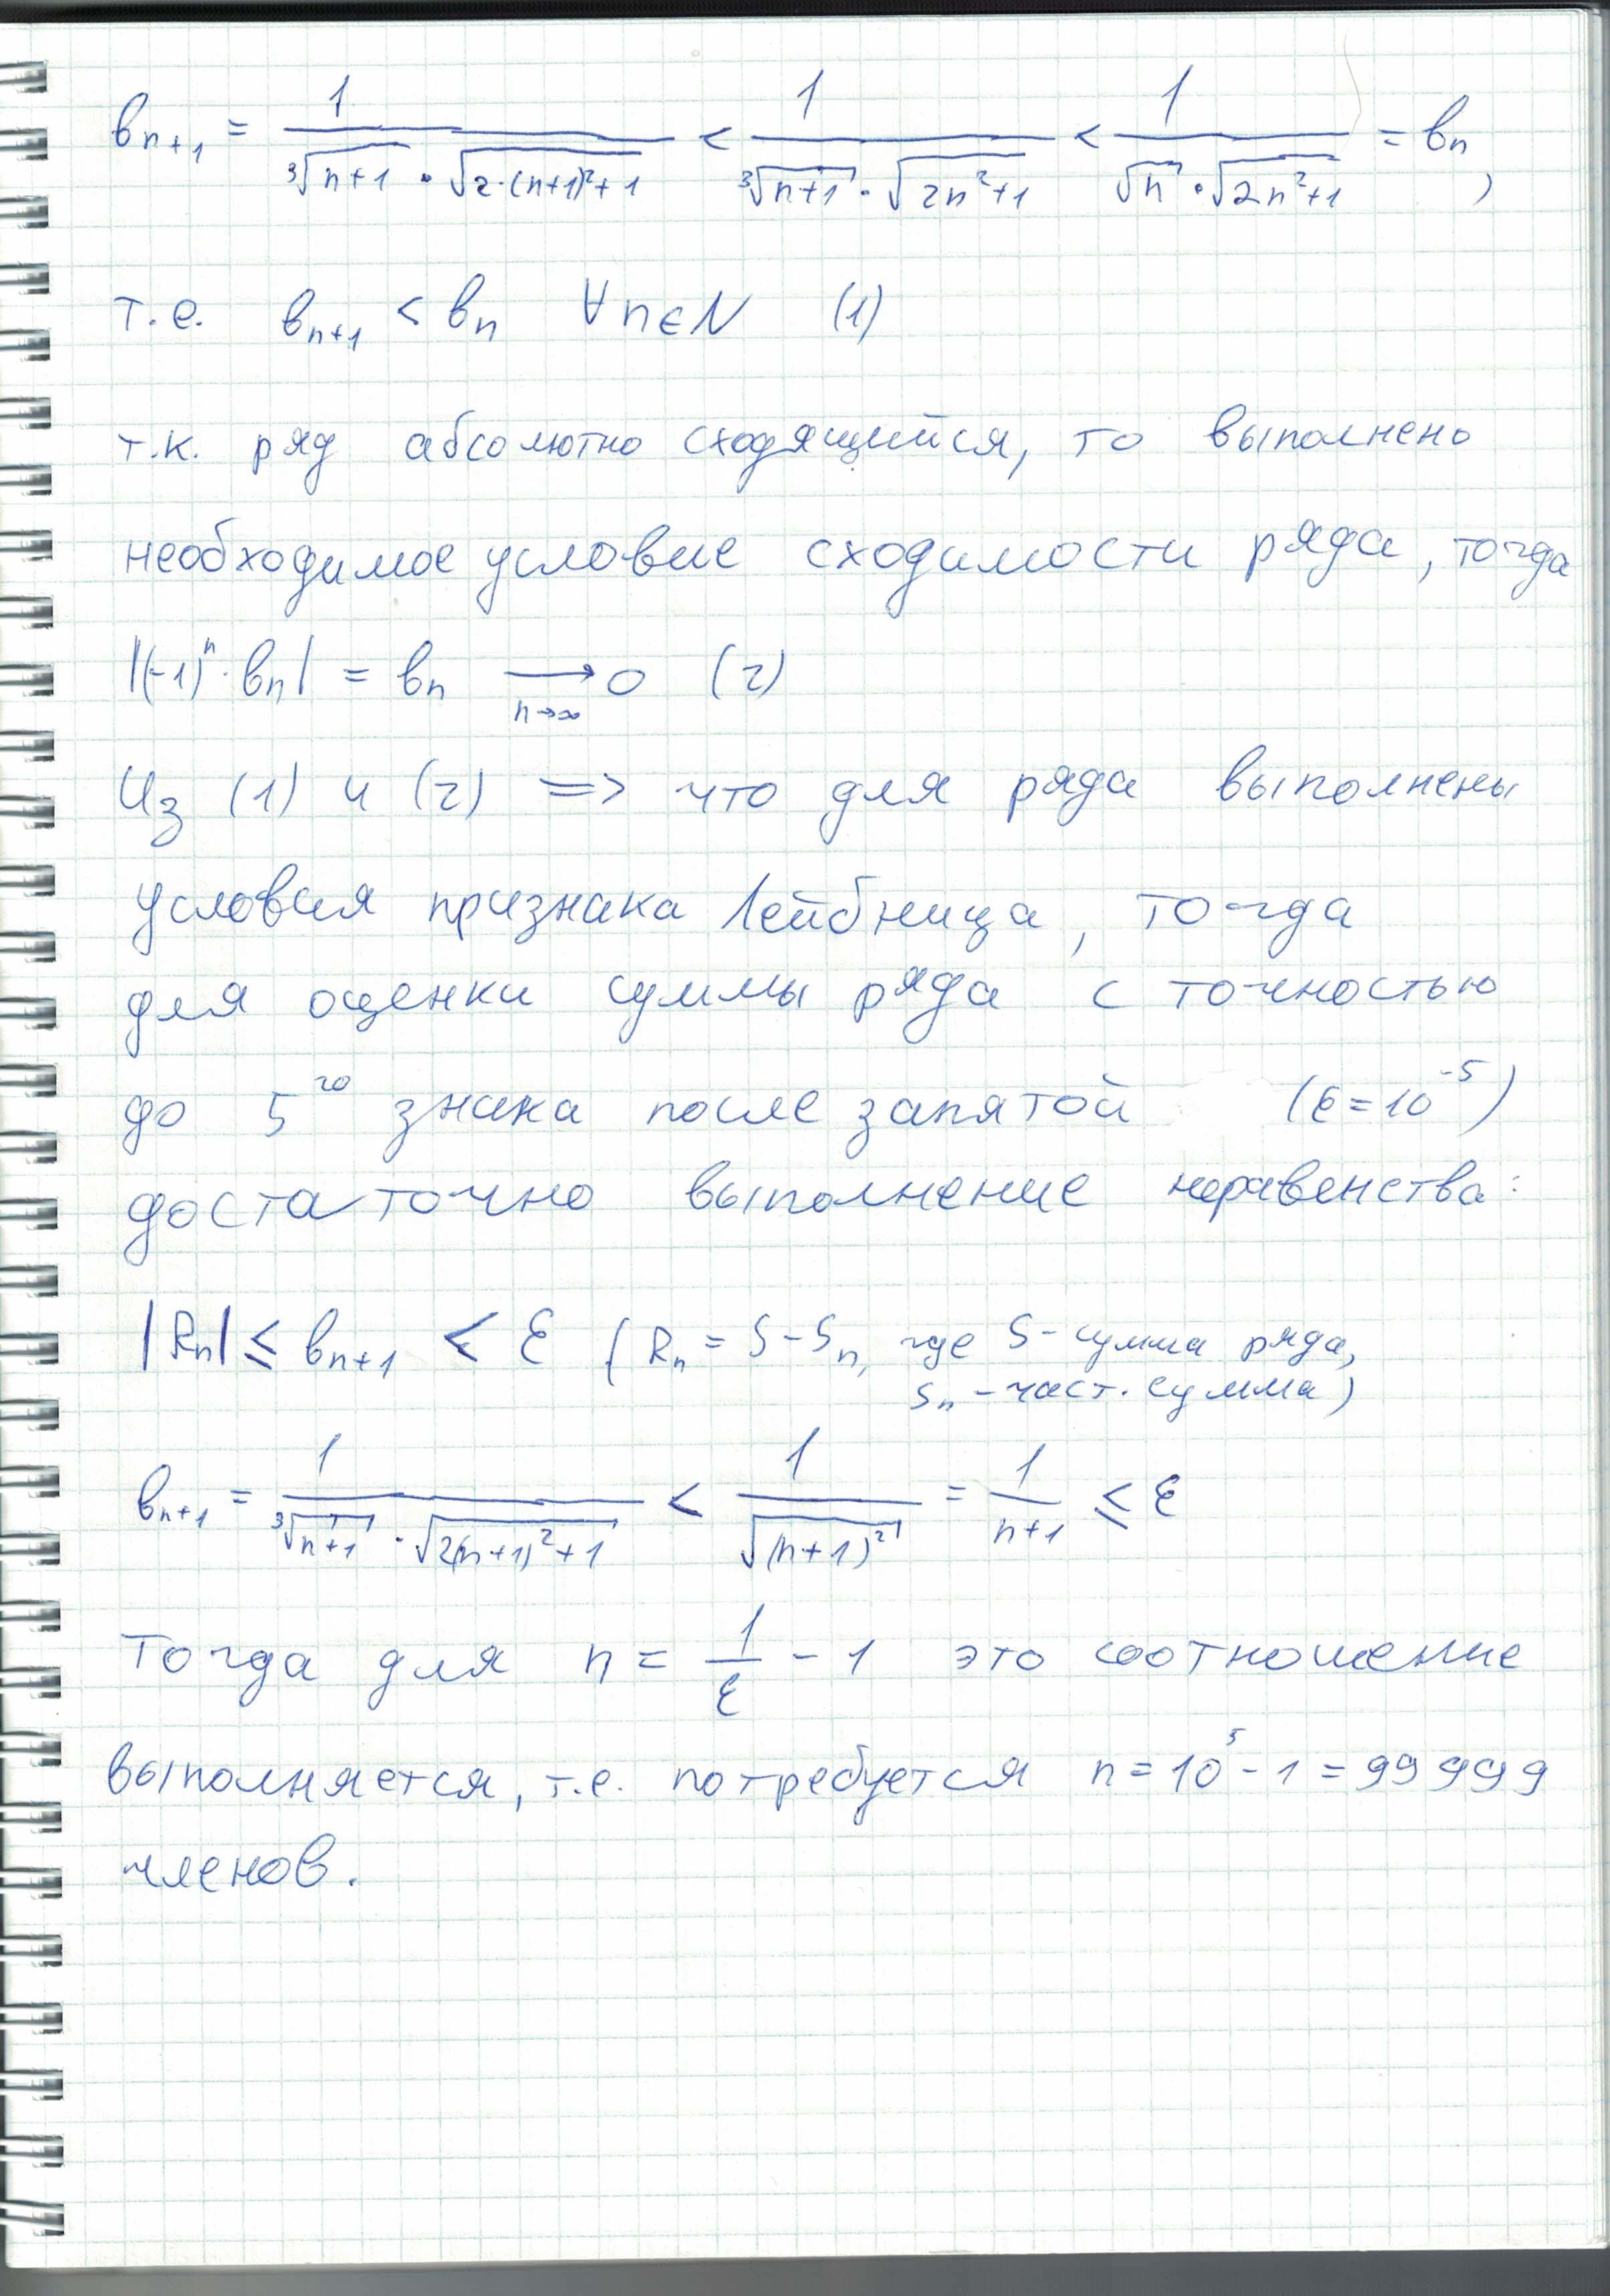 bₙ₊₁ = 1/(∛(n+1) · √(2·(n+1)²+1)) < 1/(∛(n+1) · √(2n²+1)) < 1/(√n · √(2n²+1)) = bₙ,
т.е. bₙ₊₁ < bₙ ∀n∈N (1)
т.к. ряд абсолютно сходящийся, то выполнено
необходимое условие сходимости ряда, тогда
|(-1)ⁿ · bₙ| = bₙ ⟶ 0 (2)
n→∞
Из (1) и (2) => что для ряда выполнены
условия признака Лейбница, тогда
для оценки суммы ряда с точностью
до 5го знака после запятой (ε=10⁻⁵)
достаточно выполнение неравенства:
|Rₙ| ≤ bₙ₊₁ < ε (Rₙ = S-Sₙ, где S-сумма ряда,
Sₙ-част. сумма)
bₙ₊₁ = 1/(∛(n+1) · √(2(n+1)²+1)) < 1/√((n+1)²) = 1/(n+1) ≤ ε
Тогда для n = 1/ε - 1 это соотношение
выполняется, т.е. потребуется n = 10⁵ - 1 = 99999
членов.